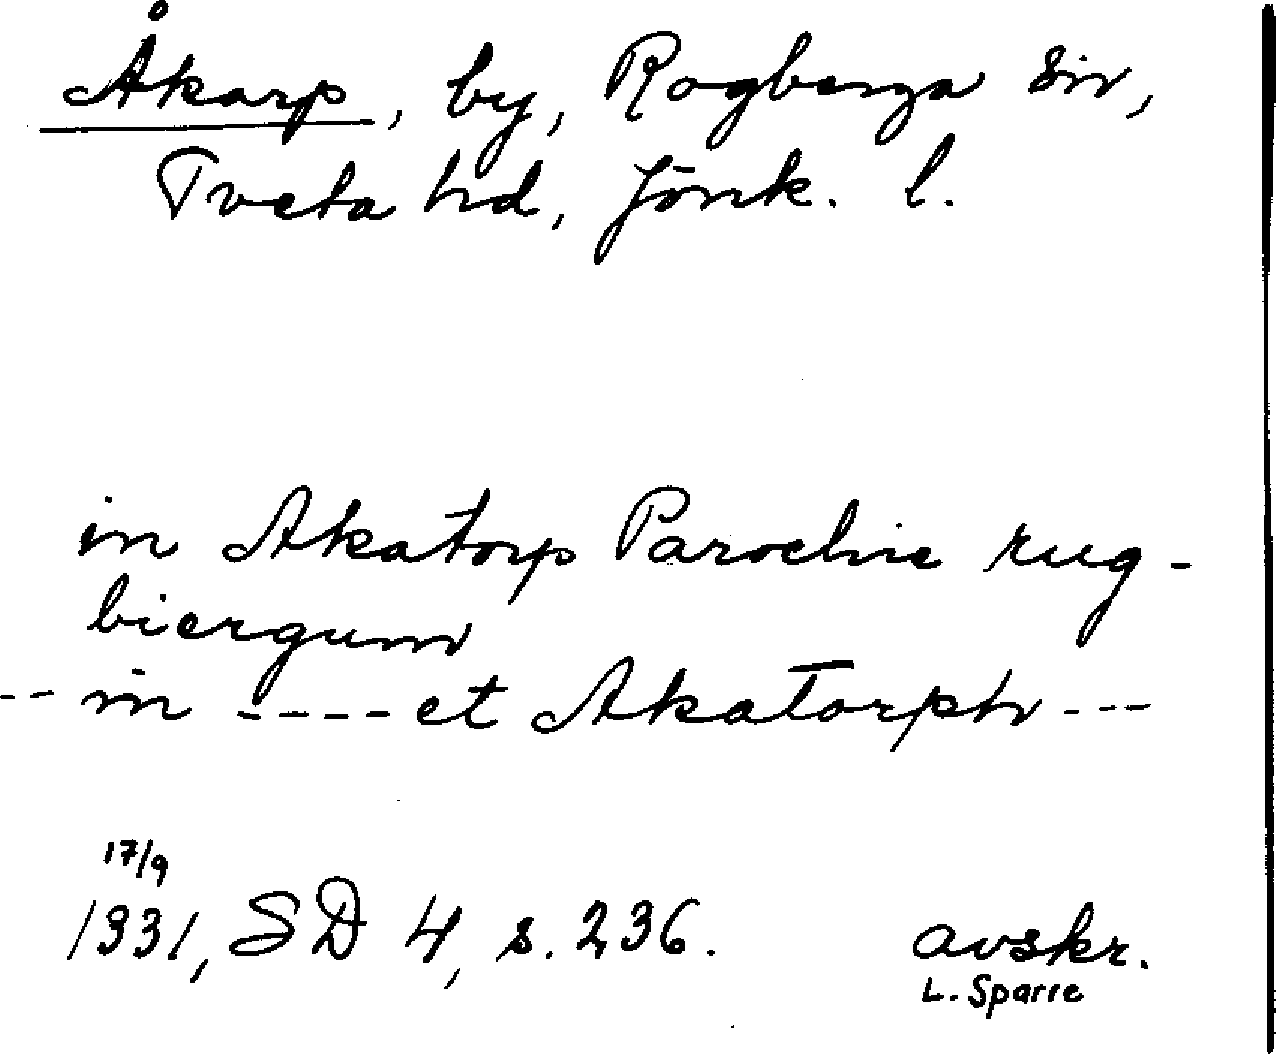 Åkarp, by, Rogberga sn,
Tveta hd, Jönk. l.
in Akatorp Parochie rug-
biergum
-- in ---- et Akatorph ---
17/9
1331, SD 4, s. 236.
avskr.
L. Sparre